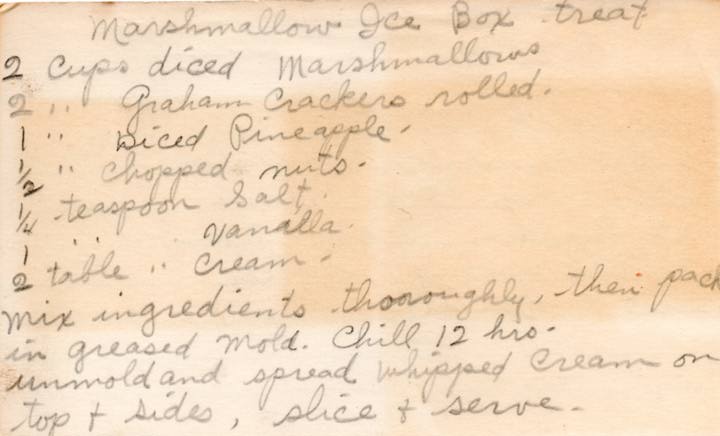 Marshmallow Ice Box treat
2 Cups diced Marshmallows
2 " Graham Crackers rolled.
1 " Diced Pineapple.
1/2 " chopped nuts.
1/4 teaspoon Salt.
1 " Vanalla.
2 table " Cream.
Mix ingredients thoroughly, then pack
in greased mold. Chill 12 hrs.
unmold and spread whipped cream on
top + sides, slice + serve.